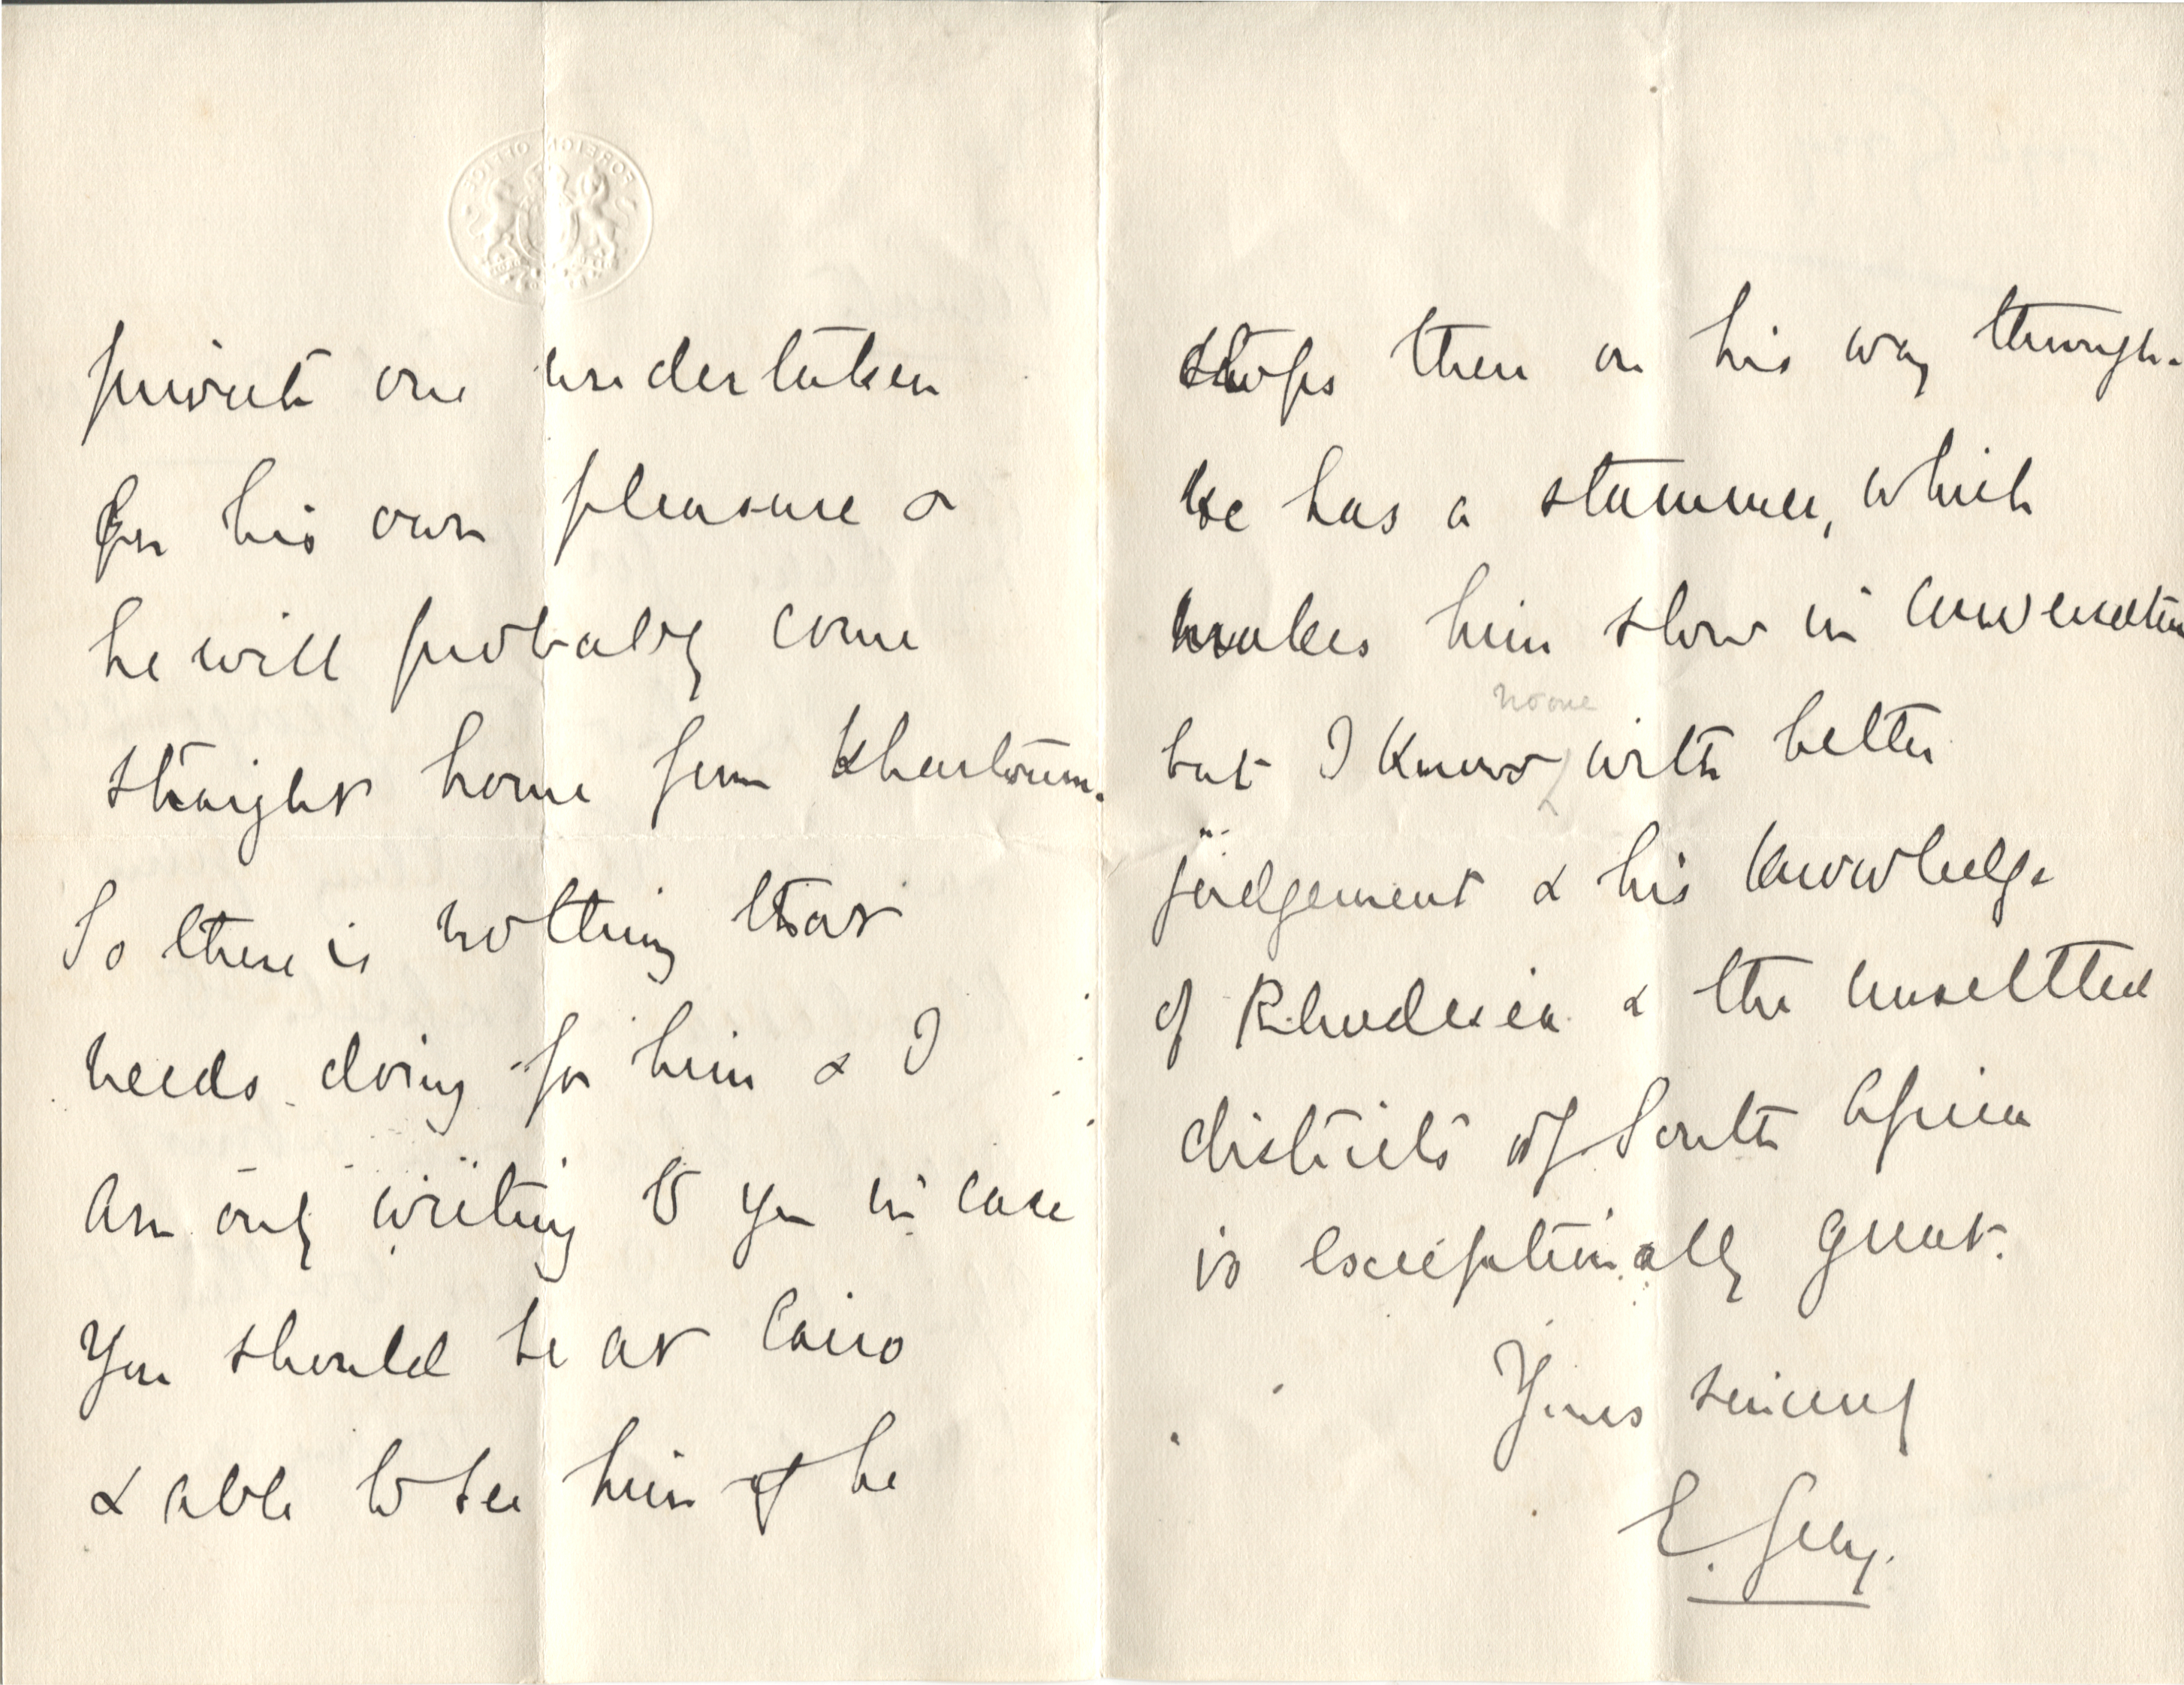 FOREIGN OFFICE
private one undertaken
for his own pleasure &
he will probably come
straight home from Khartoum.
So there is nothing that
needs doing for him & I
am only writing to you in case
you should be at Cairo
& able to see him if he
stops there on his way through.
He has a stammer, which
makes him slow in conversation
no one
but I know with better
judgement & his knowledge
of Rhodesia & the unsettled
districts of South Africa
is exceptionally great.
Yours sincerely
E. Grey.